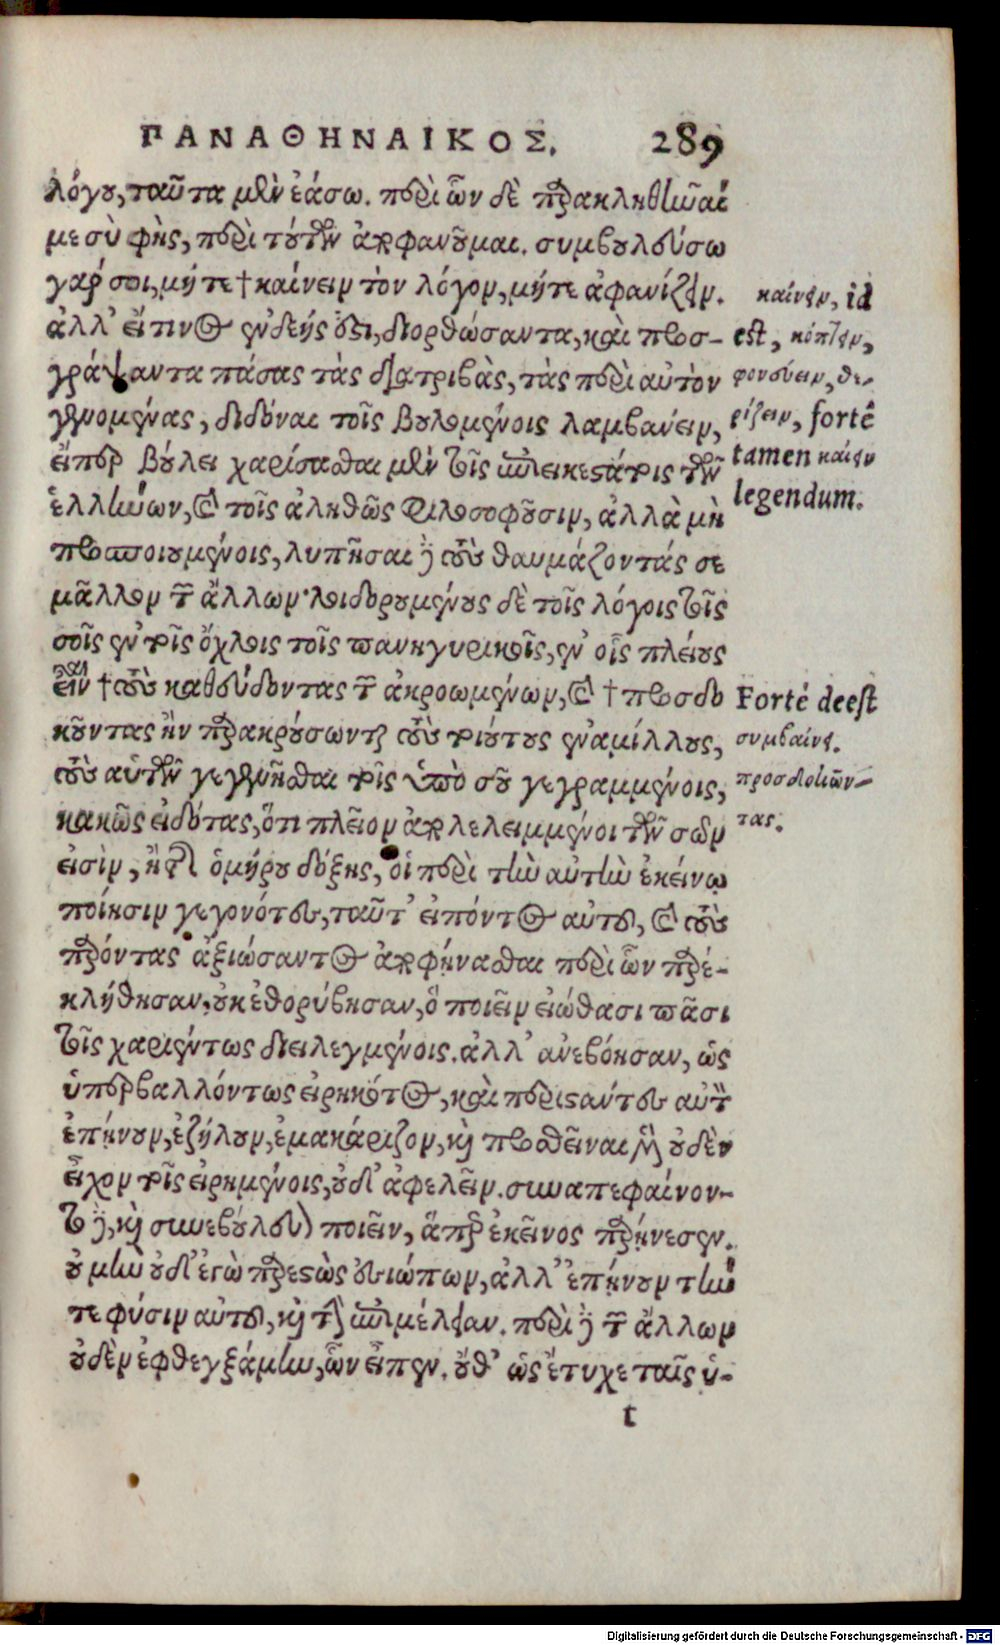 ΠΑΝΑΘΗΝΑΙΚΟΣ. 289
λόγου, ταῦτα μὲν ἐάσω. περὶ ὧν δὲ παρακληθῆναί
με σὺ φῂς, περὶ τούτων ἀποφανοῦμαι. συμβουλεύσω
γάρ σοι, μήτε † καίνειν τὸν λόγον, μήτε ἀφανίζειν.
ἀλλ' εἴ τινος ἐνδεής ὅτι, διορθώσαντα, καὶ προσ-
γράψαντα πάσας τὰς διατριβὰς, τὰς περὶ αὐτὸν
γενομένας, διδόναι τοῖς βουλομένοις λαμβάνειν,
εἴπερ βούλει χαρίσασθαι μὲν τοῖς ἐπιεικεστάτοις τῶν
ἑλλήνων, καὶ τοῖς ἀληθῶς φιλοσοφοῦσιν, ἀλλὰ μὴ
προσποιουμένοις, λυπῆσαι δὲ τοὺς θαυμάζοντάς σε
μᾶλλον τῶν ἄλλων· λοιδορουμένους δὲ τοῖς λόγοις τοῖς
σοῖς ἐν τοῖς ὄχλοις τοῖς πανηγυρικοῖς, ἐν οἷς πλείους
εἶναι † τοὺς καθεύδοντας τῶν ἀκροωμένων, καὶ † προσδο
κοῦντας ἢν παρακρούσωνται τοὺς τοιούτους ἐναμίλλους,
τοὺς αὑτῶν γεγενῆσθαι τοῖς ὑπὸ σοῦ γεγραμμένοις,
κακῶς εἰδότας, ὅτι πλεῖον ἀπολελειμμένοι τῶν σῶν
εἰσὶν, ἢ τῆς ὁμήρου δόξης, οἱ περὶ τὴν αὐτὴν ἐκείνῳ
ποίησιν γεγονότες, ταῦτ' εἰπόντος αὐτοῦ, καὶ τοὺς
παρόντας ἀξιώσαντος ἀποφήνασθαι περὶ ὧν παρε-
κλήθησαν, οὐκ ἐθορύβησαν, ὃ ποιεῖν εἰώθασι πᾶσι
τοῖς χαριέντως διειλεγμένοις. ἀλλ' ἀνεβόησαν, ὡς
ὑπερβαλλόντως εἰρηκότος, καὶ περιστάντες αὐτὸν
ἐπῄνουν, ἐζήλουν, ἐμακάριζον, καὶ προσθεῖναι μὲν οὐδὲν
εἶχον τοῖς εἰρημένοις, οὐδ' ἀφελεῖν. συναπεφαίνον-
το δὲ, καὶ συνεβούλευον ποιεῖν, ἅπερ ἐκεῖνος παρῄνεσεν.
οὐ μὴν οὐδ' ἐγὼ παρεστὼς ἐσιώπων, ἀλλ' ἐπῄνουν τήν
τε φύσιν αὐτοῦ, καὶ τὴν ἐπιμέλειαν. περὶ δὲ τῶν ἄλλων
οὐδὲν ἐφθεγξάμην, ὧν εἶπεν. οὔθ' ὡς ἔτυχε ταῖς ὑ-
t
καίνειν, id
est, κόπτειν,
φονεύειν, θε-
ρίζειν, forté
tamen καίειν
legendum.
Forté deest
συμβαίνει.
προσδοκῶν-
τας.
Digitalisierung gefördert durch die Deutsche Forschungsgemeinschaft - DFG